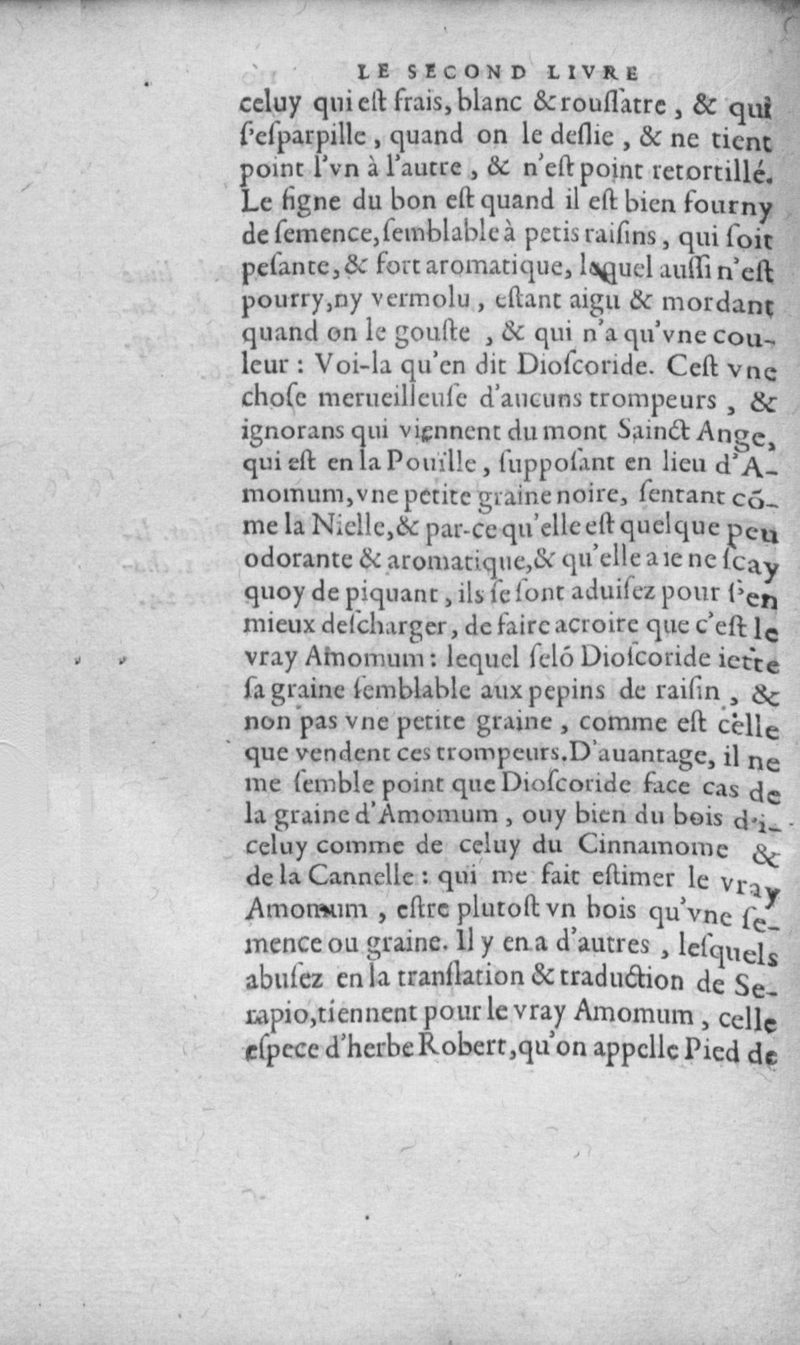 LE SECOND LIVRE
celuy qui est frais, blanc & roussatre , & qui
s'esparpille , quand on le deslie , & ne tient
point l'vn à l'autre , & n'est point retortillé.
Le signe du bon est quand il est bien fourny
de semence, semblable à petis raisins , qui soit
pesante, & fort aromatique, laquel aussi n'est
pourry, ny vermolu , estant aigu & mordant
quand on le gouste , & qui n'a qu'vne cou-
leur : Voi-la qu'en dit Dioscoride. Cest vne
chose merueilleuse d'aucuns trompeurs , &
ignorans qui viennent du mont Sainct Ange,
qui est en la Pouïlle , supposant en lieu d'A-
momum, vne petite graine noire, sentant cō-
me la Nielle, & par-ce qu'elle est quelque peu
odorante & aromatique, & qu'elle a ie ne scay
quoy de piquant , ils se sont aduisez pour s'en
mieux descharger, de faire acroire que c'est le
vray Amomum : lequel selō Dioscoride iette
sa graine semblable aux pepins de raisin , &
non pas vne petite graine , comme est celle
que vendent ces trompeurs. D'auantage, il ne
me semble point que Dioscoride face cas de
la graine d'Amomum , ouy bien du bois d'i-
celuy comme de celuy du Cinnamome &
de la Cannelle : qui me fait estimer le vray
Amomum , estre plutost vn bois qu'vne se-
mence ou graine. Il y en a d'autres , lesquels
abusez en la translation & traduction de Se-
rapio, tiennent pour le vray Amomum , celle
espece d'herbe Robert, qu'on appelle Pied de